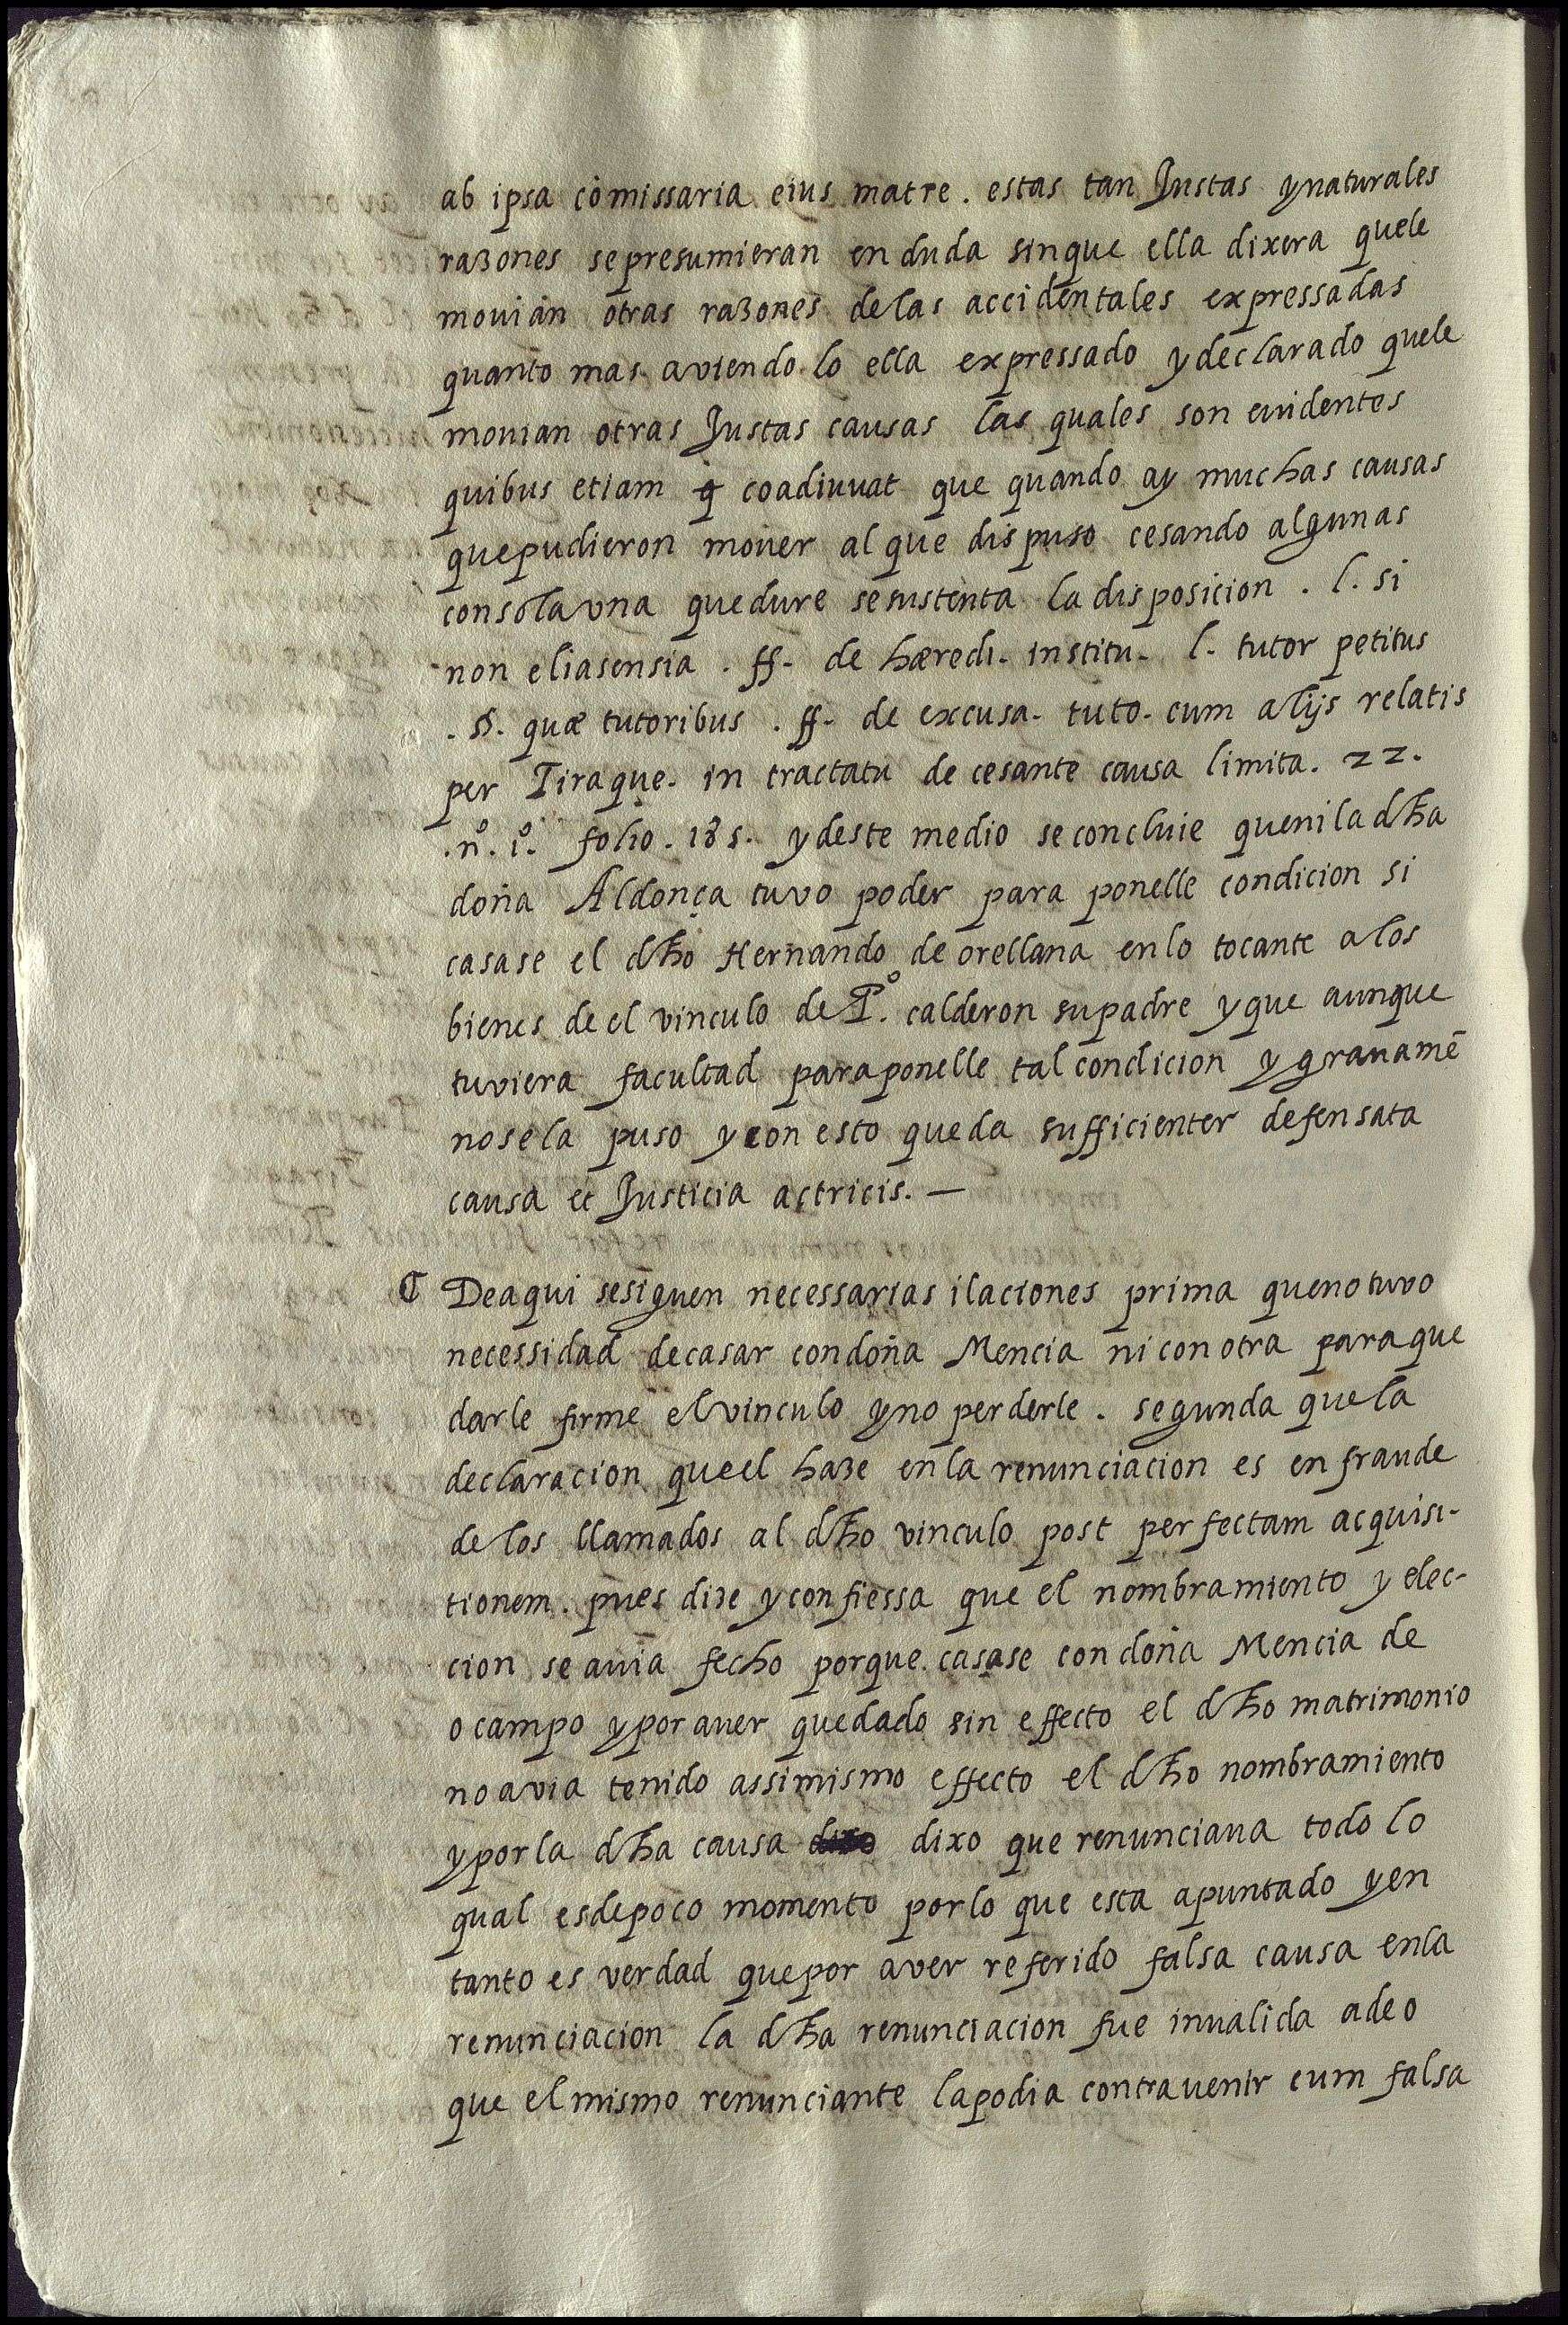 ab ipsa cōmissaria eius matre. estas tan Justas y naturales
razones se presumieran en duda sin que ella dixera quele
mouian otras razones de las accidentales expressadas
quanto mas aviendo lo ella expressado y declarado quele
mouian otras Justas causas las quales son euidentes
quibus etiam q̇ coadiuuat que quando ay muchas causas
que pudieron mouer al que dispuso cesando algunas
con sola vna que dure se sustenta la disposicion. l. si
non eliasensia. ff. de hæredi. institu. l. tutor petitus
.§. quæ tutoribus. ff. de excusa. tuto. cum alijs relatis
per Tiraque. in tractatu de cesante causa limita. 22.
.nº. 1º. folio. 185. y deste medio se concluie que ni la dha
doña Aldonça tuvo poder para ponelle condicion si
casase el dho Hernando de orellana en lo tocante a los
bienes de el vinculo de Pº. calderon su padre y que aunque
tuviera facultad para ponelle tal condicion y grauamē
no se la puso y con esto queda sufficienter defensata
causa et Justicia actricis. —
¶ De aqui se siguen necessarias ilaciones prima que no tuvo
necessidad de casar con doña Mencia ni con otra para que
darle firme el vinculo y no perderle. segunda que la
declaracion que el haze en la renunciacion es en fraude
de los llamados al dho vinculo post perfectam acquisi-
tionem. pues dize y confiessa que el nombramiento y elec-
cion se auia fecho porque casase con doña Mencia de
ocampo y por auer quedado sin effecto el dho matrimonio
no avia tenido assimismo effecto el dho nombramiento
y por la dha causa dixo que renunciaua todo lo
qual es de poco momento por lo que esta apuntado y en
tanto es verdad que por aver referido falsa causa en la
renunciacion la dha renunciacion fue inualida adeo
que el mismo renunciante la podia contrauenir cum falsa